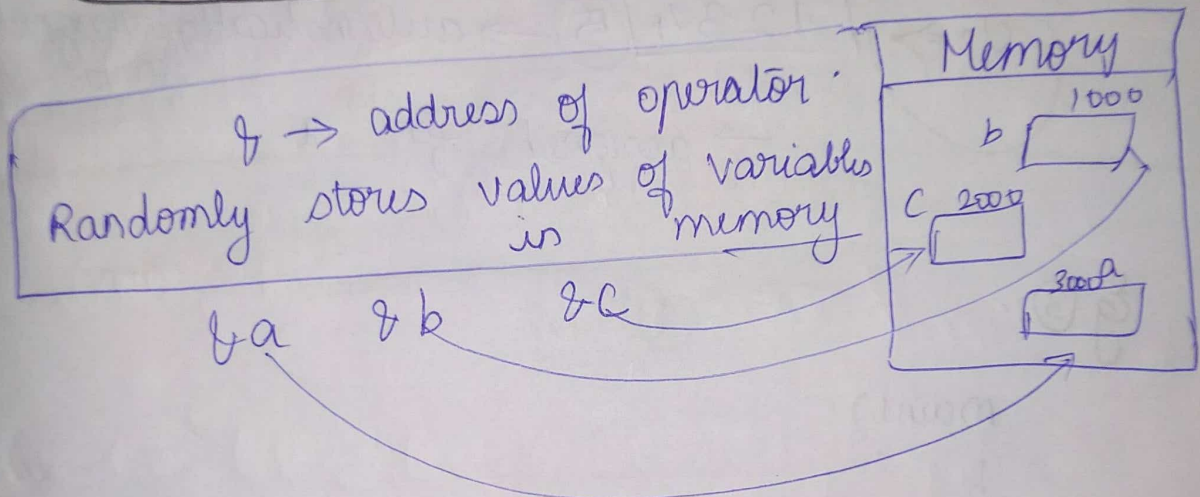 & → address of operator.
Randomly stores values of variables
in memory
&a &b &c
Memory
1000
b
C 2000
3000 a
main()